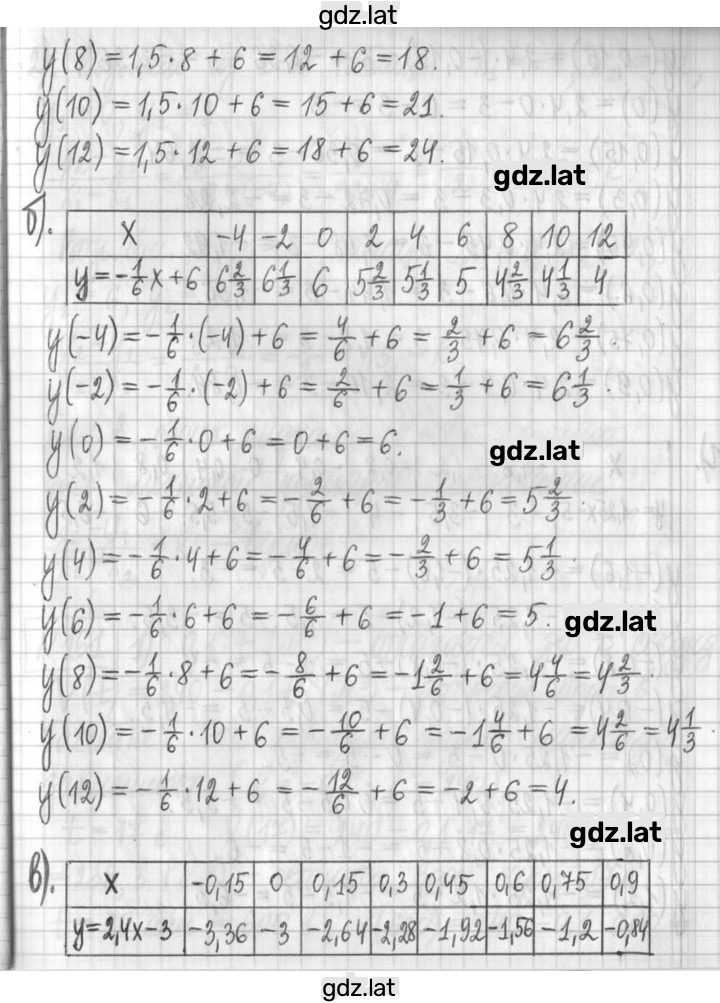 gdz.lat
y(8) = 1,5·8 + 6 = 12 + 6 = 18.
y(10) = 1,5·10 + 6 = 15 + 6 = 21.
y(12) = 1,5·12 + 6 = 18 + 6 = 24.
gdz.lat
б).
x -4 -2 0 2 4 6 8 10 12
y = -1/6 x + 6 6 2/3 6 1/3 6 5 2/3 5 1/3 5 4 2/3 4 1/3 4
y(-4) = -1/6·(-4) + 6 = 4/6 + 6 = 2/3 + 6 = 6 2/3.
y(-2) = -1/6·(-2) + 6 = 2/6 + 6 = 1/3 + 6 = 6 1/3.
y(0) = -1/6·0 + 6 = 0 + 6 = 6.
gdz.lat
y(2) = -1/6·2 + 6 = -2/6 + 6 = -1/3 + 6 = 5 2/3.
y(4) = -1/6·4 + 6 = -4/6 + 6 = -2/3 + 6 = 5 1/3.
y(6) = -1/6·6 + 6 = -6/6 + 6 = -1 + 6 = 5.
gdz.lat
y(8) = -1/6·8 + 6 = -8/6 + 6 = -1 2/6 + 6 = 4 4/6 = 4 2/3.
y(10) = -1/6·10 + 6 = -10/6 + 6 = -1 4/6 + 6 = 4 2/6 = 4 1/3.
y(12) = -1/6·12 + 6 = -12/6 + 6 = -2 + 6 = 4.
gdz.lat
в).
x -0,15 0 0,15 0,3 0,45 0,6 0,75 0,9
y = 2,4x - 3 -3,36 -3 -2,64 -2,28 -1,92 -1,56 -1,2 -0,84
gdz.lat